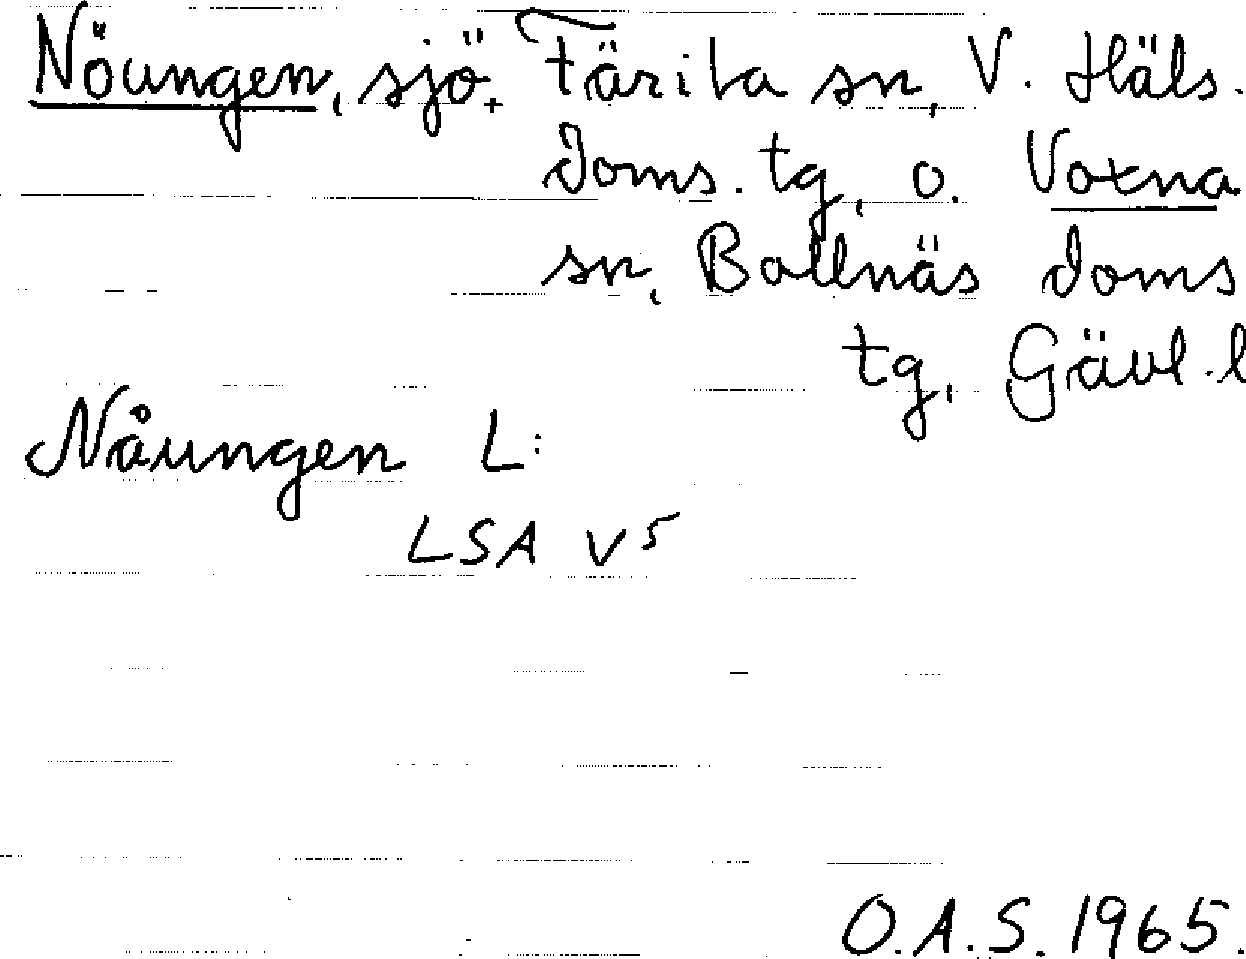 Nöungen, sjö. Färila sn, V. Häls.
Doms. tg, o. Voxna
sn, Bollnäs doms
tg, Gävl. l
Nåungen L:
LSA V5
O.A.S. 1965.